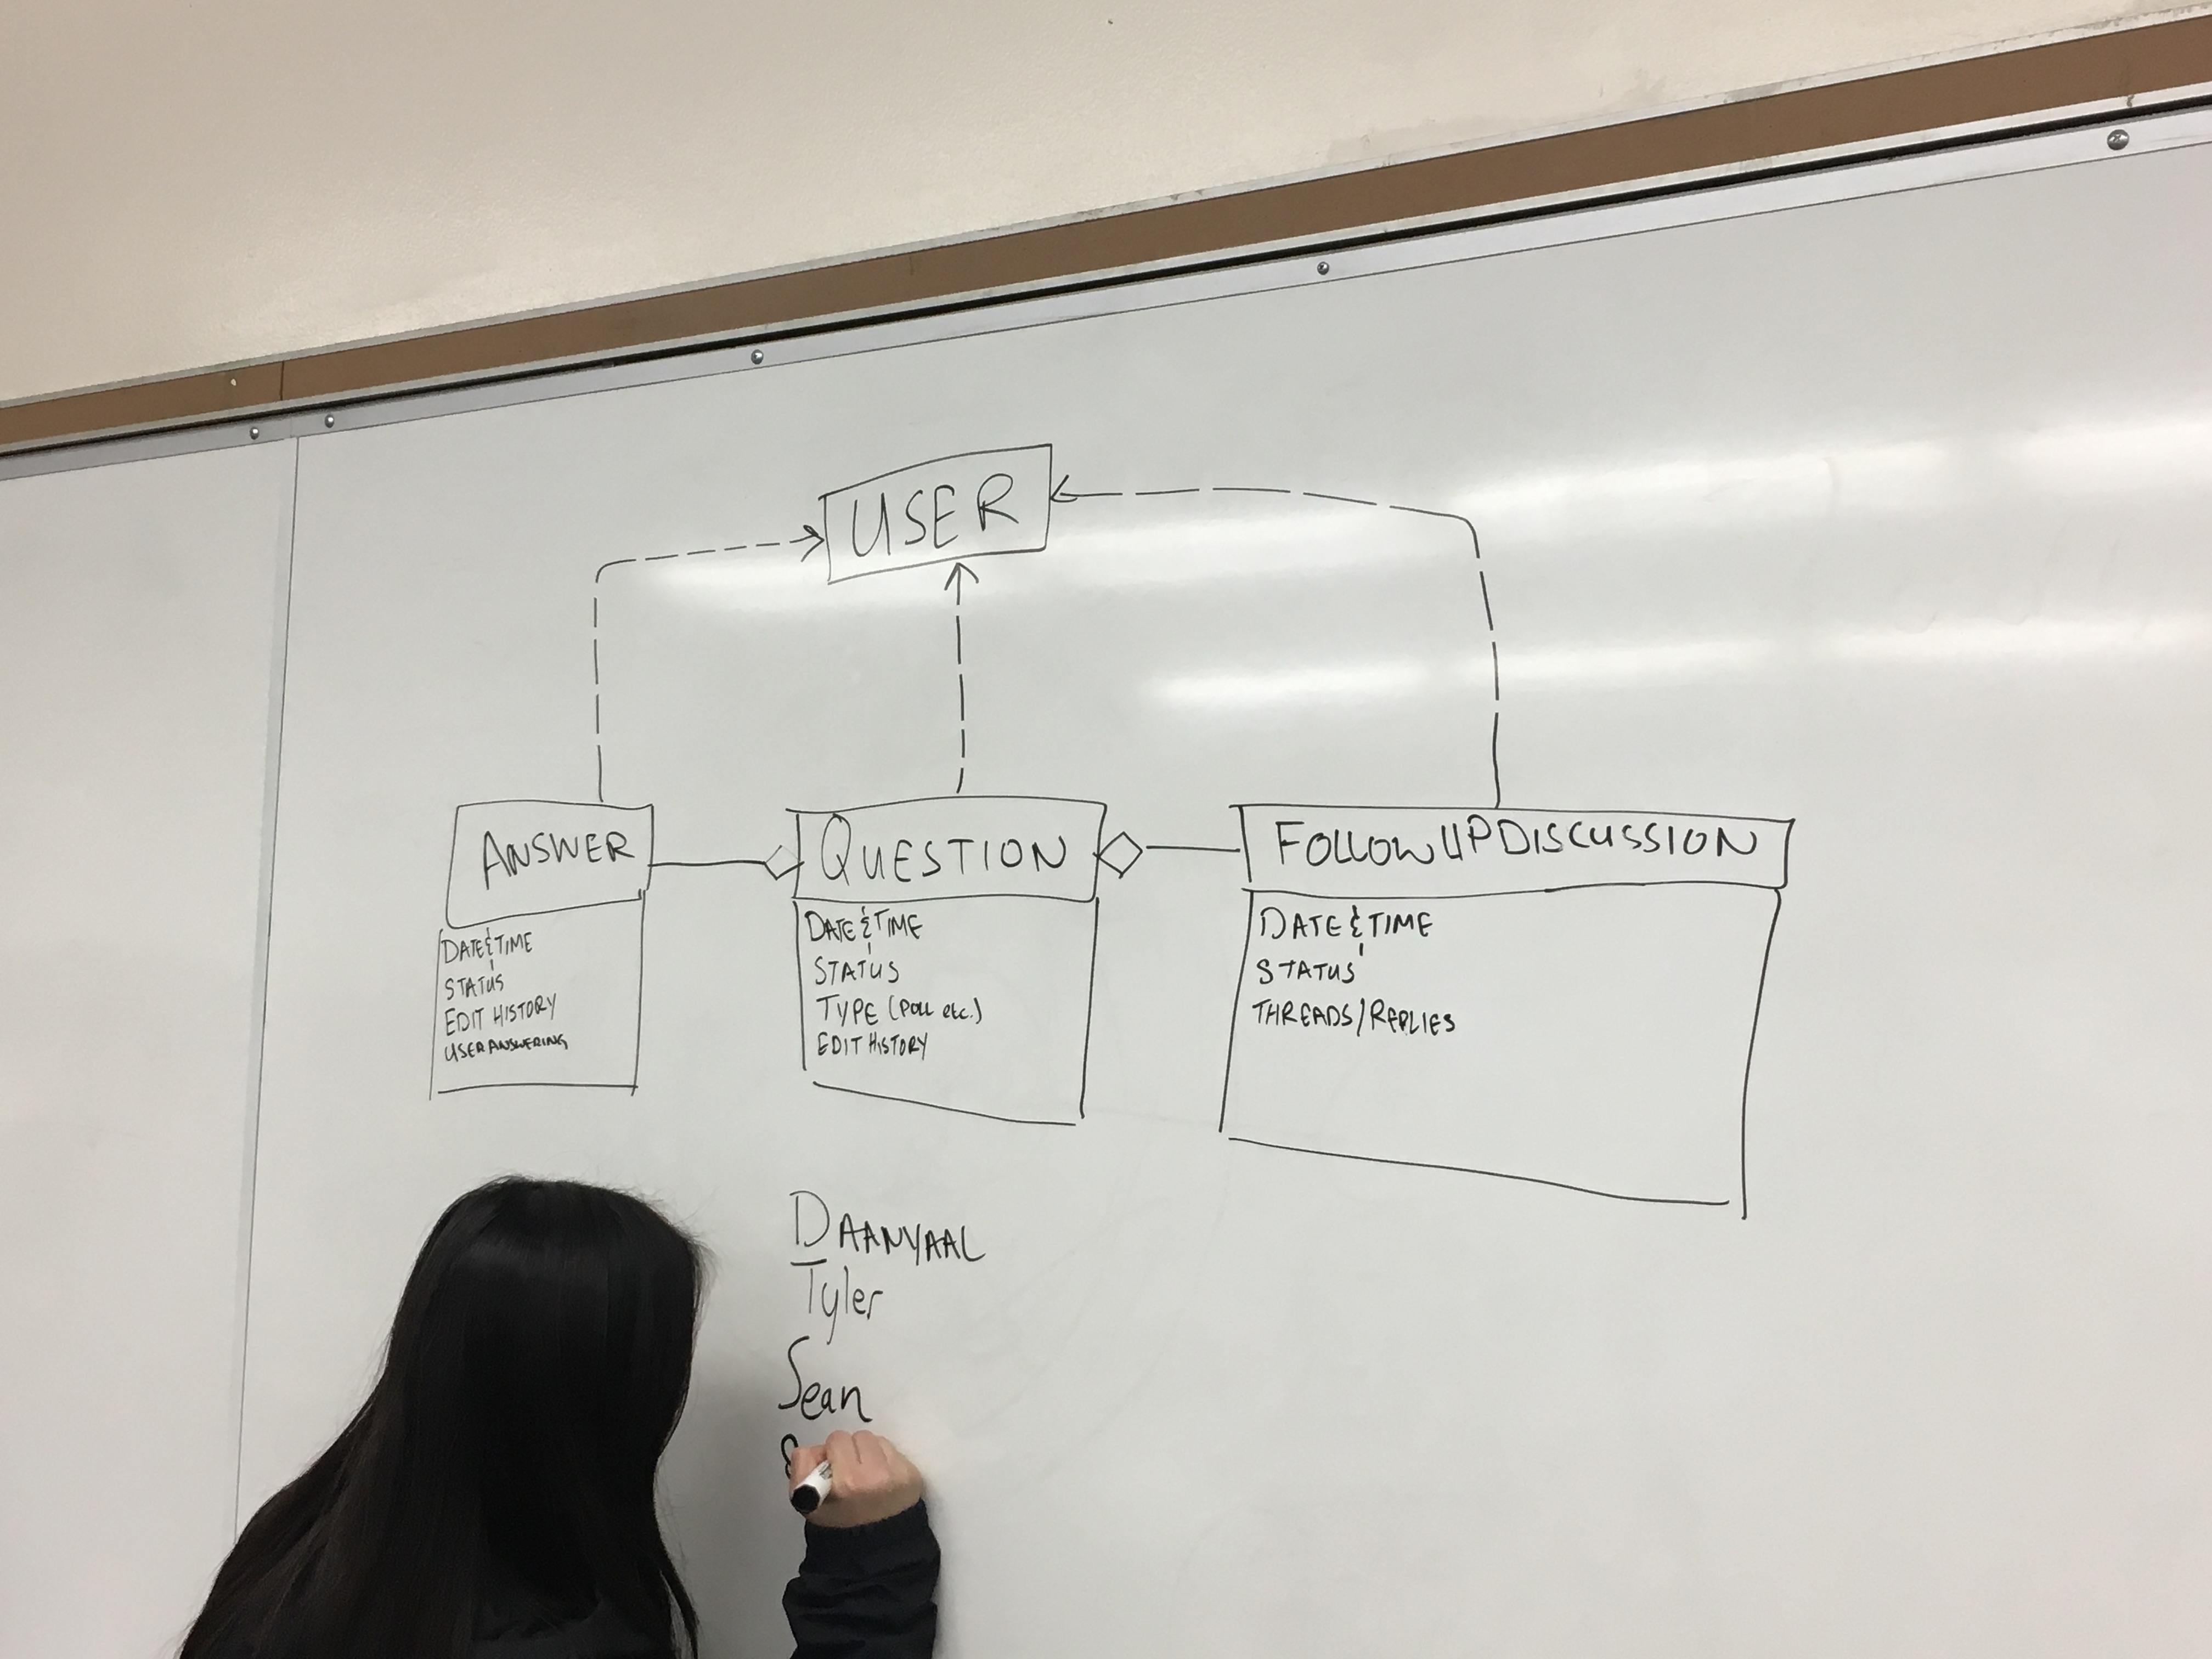 USER
ANSWER
DATE & TIME
STATUS
EDIT HISTORY
USER ANSWERING
QUESTION
DATE & TIME
STATUS
TYPE (POLL etc.)
EDIT HISTORY
FOLLOWUPDISCUSSION
DATE & TIME
STATUS
THREADS/REPLIES
DAANYAAL
Tyler
Sean